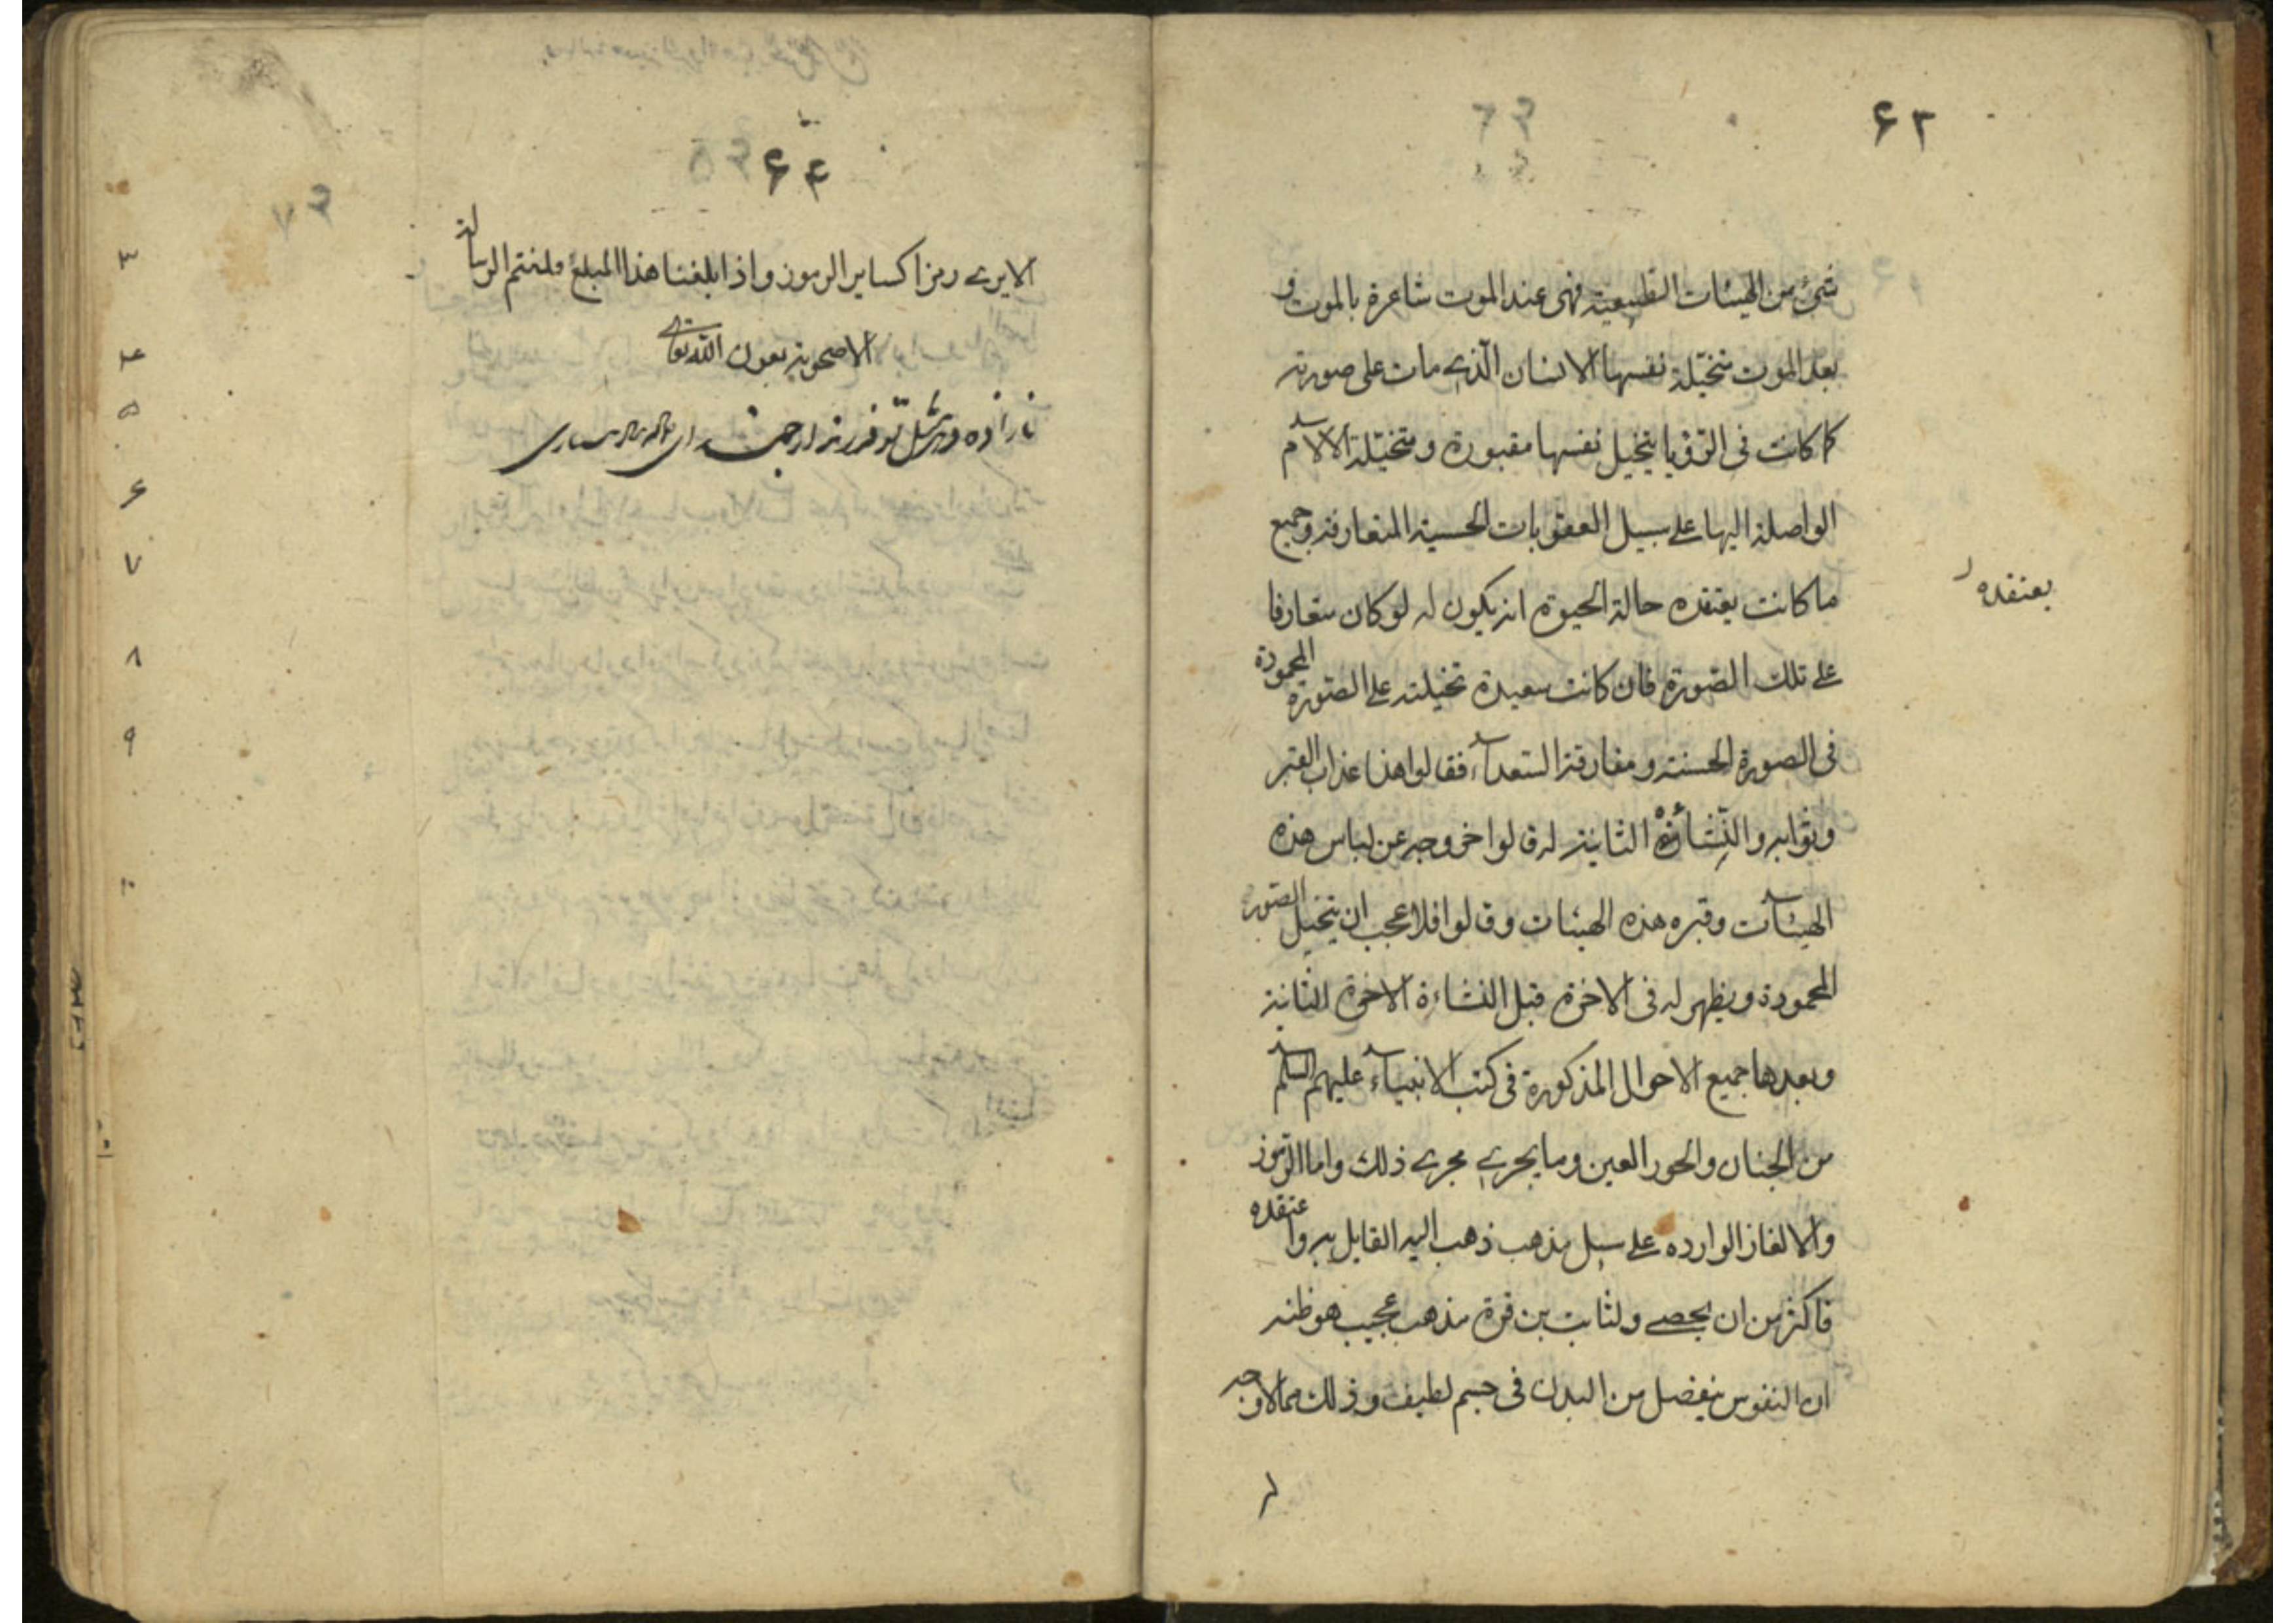 ۶۳
شئ من الهيئات الطبيعية فهى عند الموت شاعرة بالموت و
بعد الموت متخيلة نفسها الانسان الّذى مات على صورته
كما كانت فى الرؤيا يتخيل نفسها مقبورة و متخيلة الآلام
الواصلة اليها على سبيل العقوبات الحسية المتعارفة و جميع
ما كانت يعتقده حالة الحيوة انه يكون له لو كان متعارفا
يعتقده
على تلك الصورة فان كانت سعيدة تخيلته على الصورة المحمودة
فى الصورة الحسنة و مفارقة السعدآء فقالوا هذا عذاب القبر
و ثوابه و النشأة الثانية له قالوا خروجه عن لباس هذه
الهيئآت و قبره هذه الهيئات و قالوا فلا عجب ان يتخيل الصور
المحمودة و يظهر له فى الاخرة قبل النشاءة الاخرة الثانية
و بعدها جميع الاحوال المذكورة فى كتب الانبيآء عليهم السلم
من الجنان و الحور العين و ما يجرى مجرى ذلك و اما الرموز
و الالغاز الوارده على سبل مذهب ذهب اليه القايل به و اعتقده
فاكثر من ان يحصى و لثابت بن قرة مذهب عجيب هو ظنه
ان النفوس ينفصل من البدن فى جسم لطيف و ذلك مما لا وجه
۶۴
الا يرى رمزا كساير الرموز و اذا بلغنا هذا المبلغ فلنختم الرسالة
الاضحوية بعون الله تعالى
۳
۴
۵
۶
۷
۸
۹
۱۰